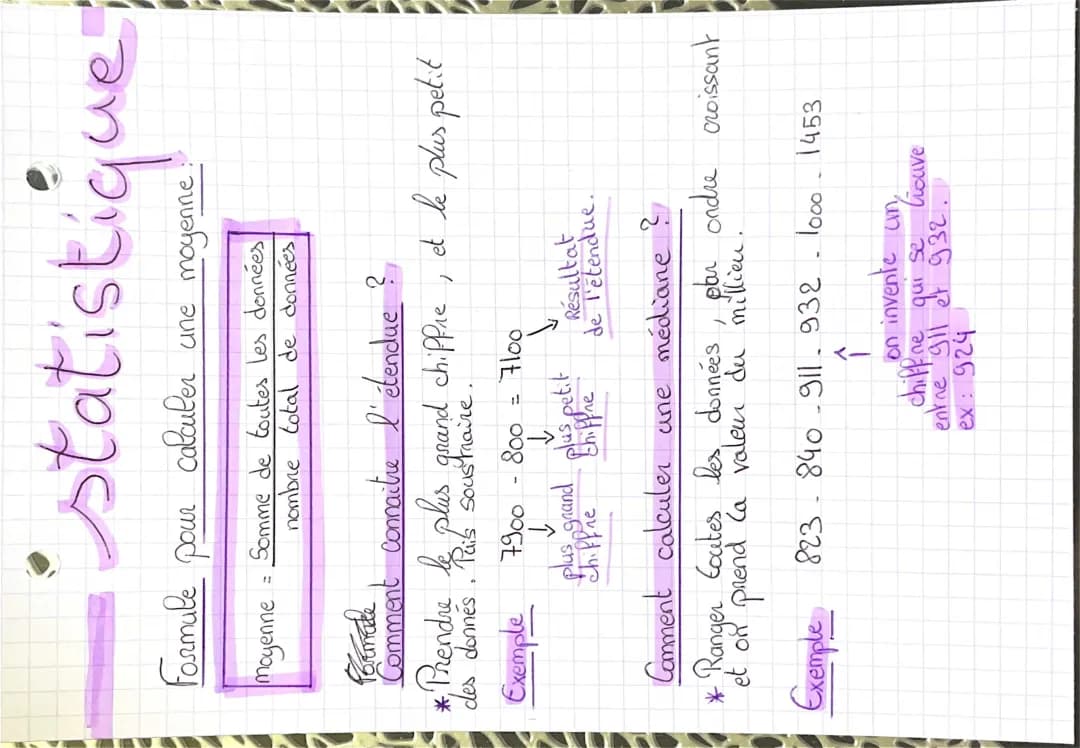 statistique
Formule pour calculer une moyenne :
moyenne = Somme de toutes les données
nombre total de données
Formule
Comment connaitre l'étendue ?
* Prendre le plus grand chiffre, et le plus petit
des donnés. Puis soustraire.
Exemple
7900 - 800 = 7100
↓ ↓ ↘
plus grand
chiffre
plus petit
chiffre
Résultat
de l'étendue.
Comment calculer une médiane ?
* Ranger toutes les données, par ordre croissant
et on prend la valeur du millieu.
Exemple
823 - 840 - 911 - 932 - 1000 - 1453
↑
on invente un
chiffre qui se trouve
entre 911 et 932.
ex : 924